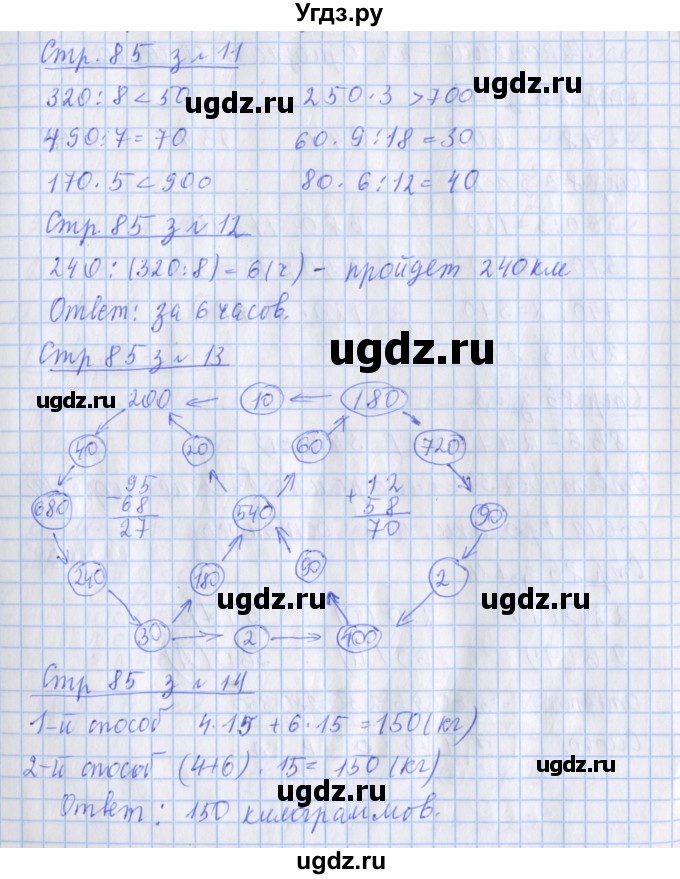 Угдз.ру
Стр. 85 з № 11
320:8<50 250·3 >700
490:7=70 60·9:18=30
170·5<900 80·6:12=40
Стр 85 з № 12
240:(320:8)=6(ч)- пройдет 240 км
Ответ: за 6 часов.
Стр 85 з № 13
200 10 180
40 20 60 720
680 95 540 12 90
- 68 + 58
27 70
240 180 90 2
30 2 400
Стр 85 з № 14
1-й способ 4·15+6·15=150(кг)
2-й способ (4+6)·15=150(кг)
Ответ: 150 килограммов.
ugdz.ru
ugdz.ru
ugdz.ru
ugdz.ru
ugdz.ru
ugdz.ru
ugdz.ru
ugdz.ru
ugdz.ru
ugdz.ru
ugdz.ru